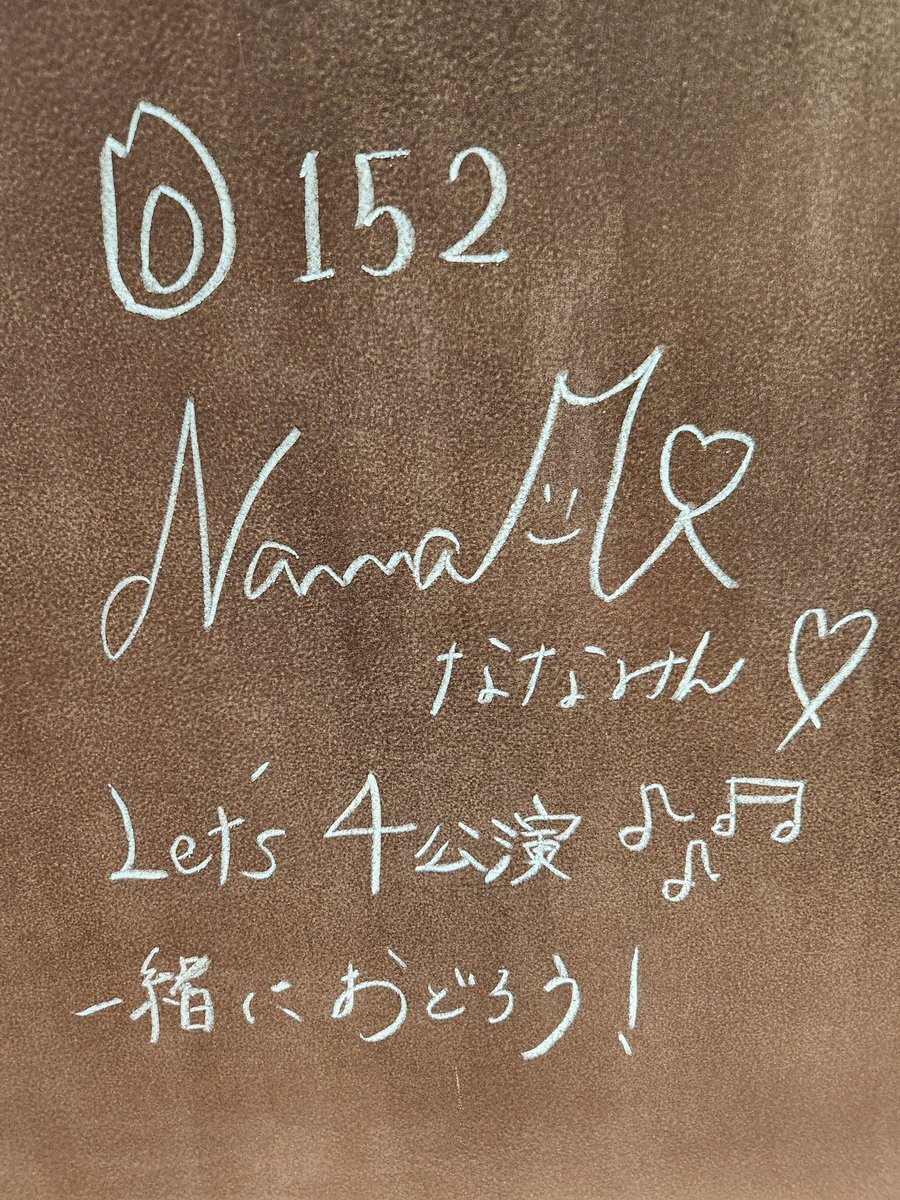 152
Nana
ななみん
Let's 4公演
一緒におどろう!